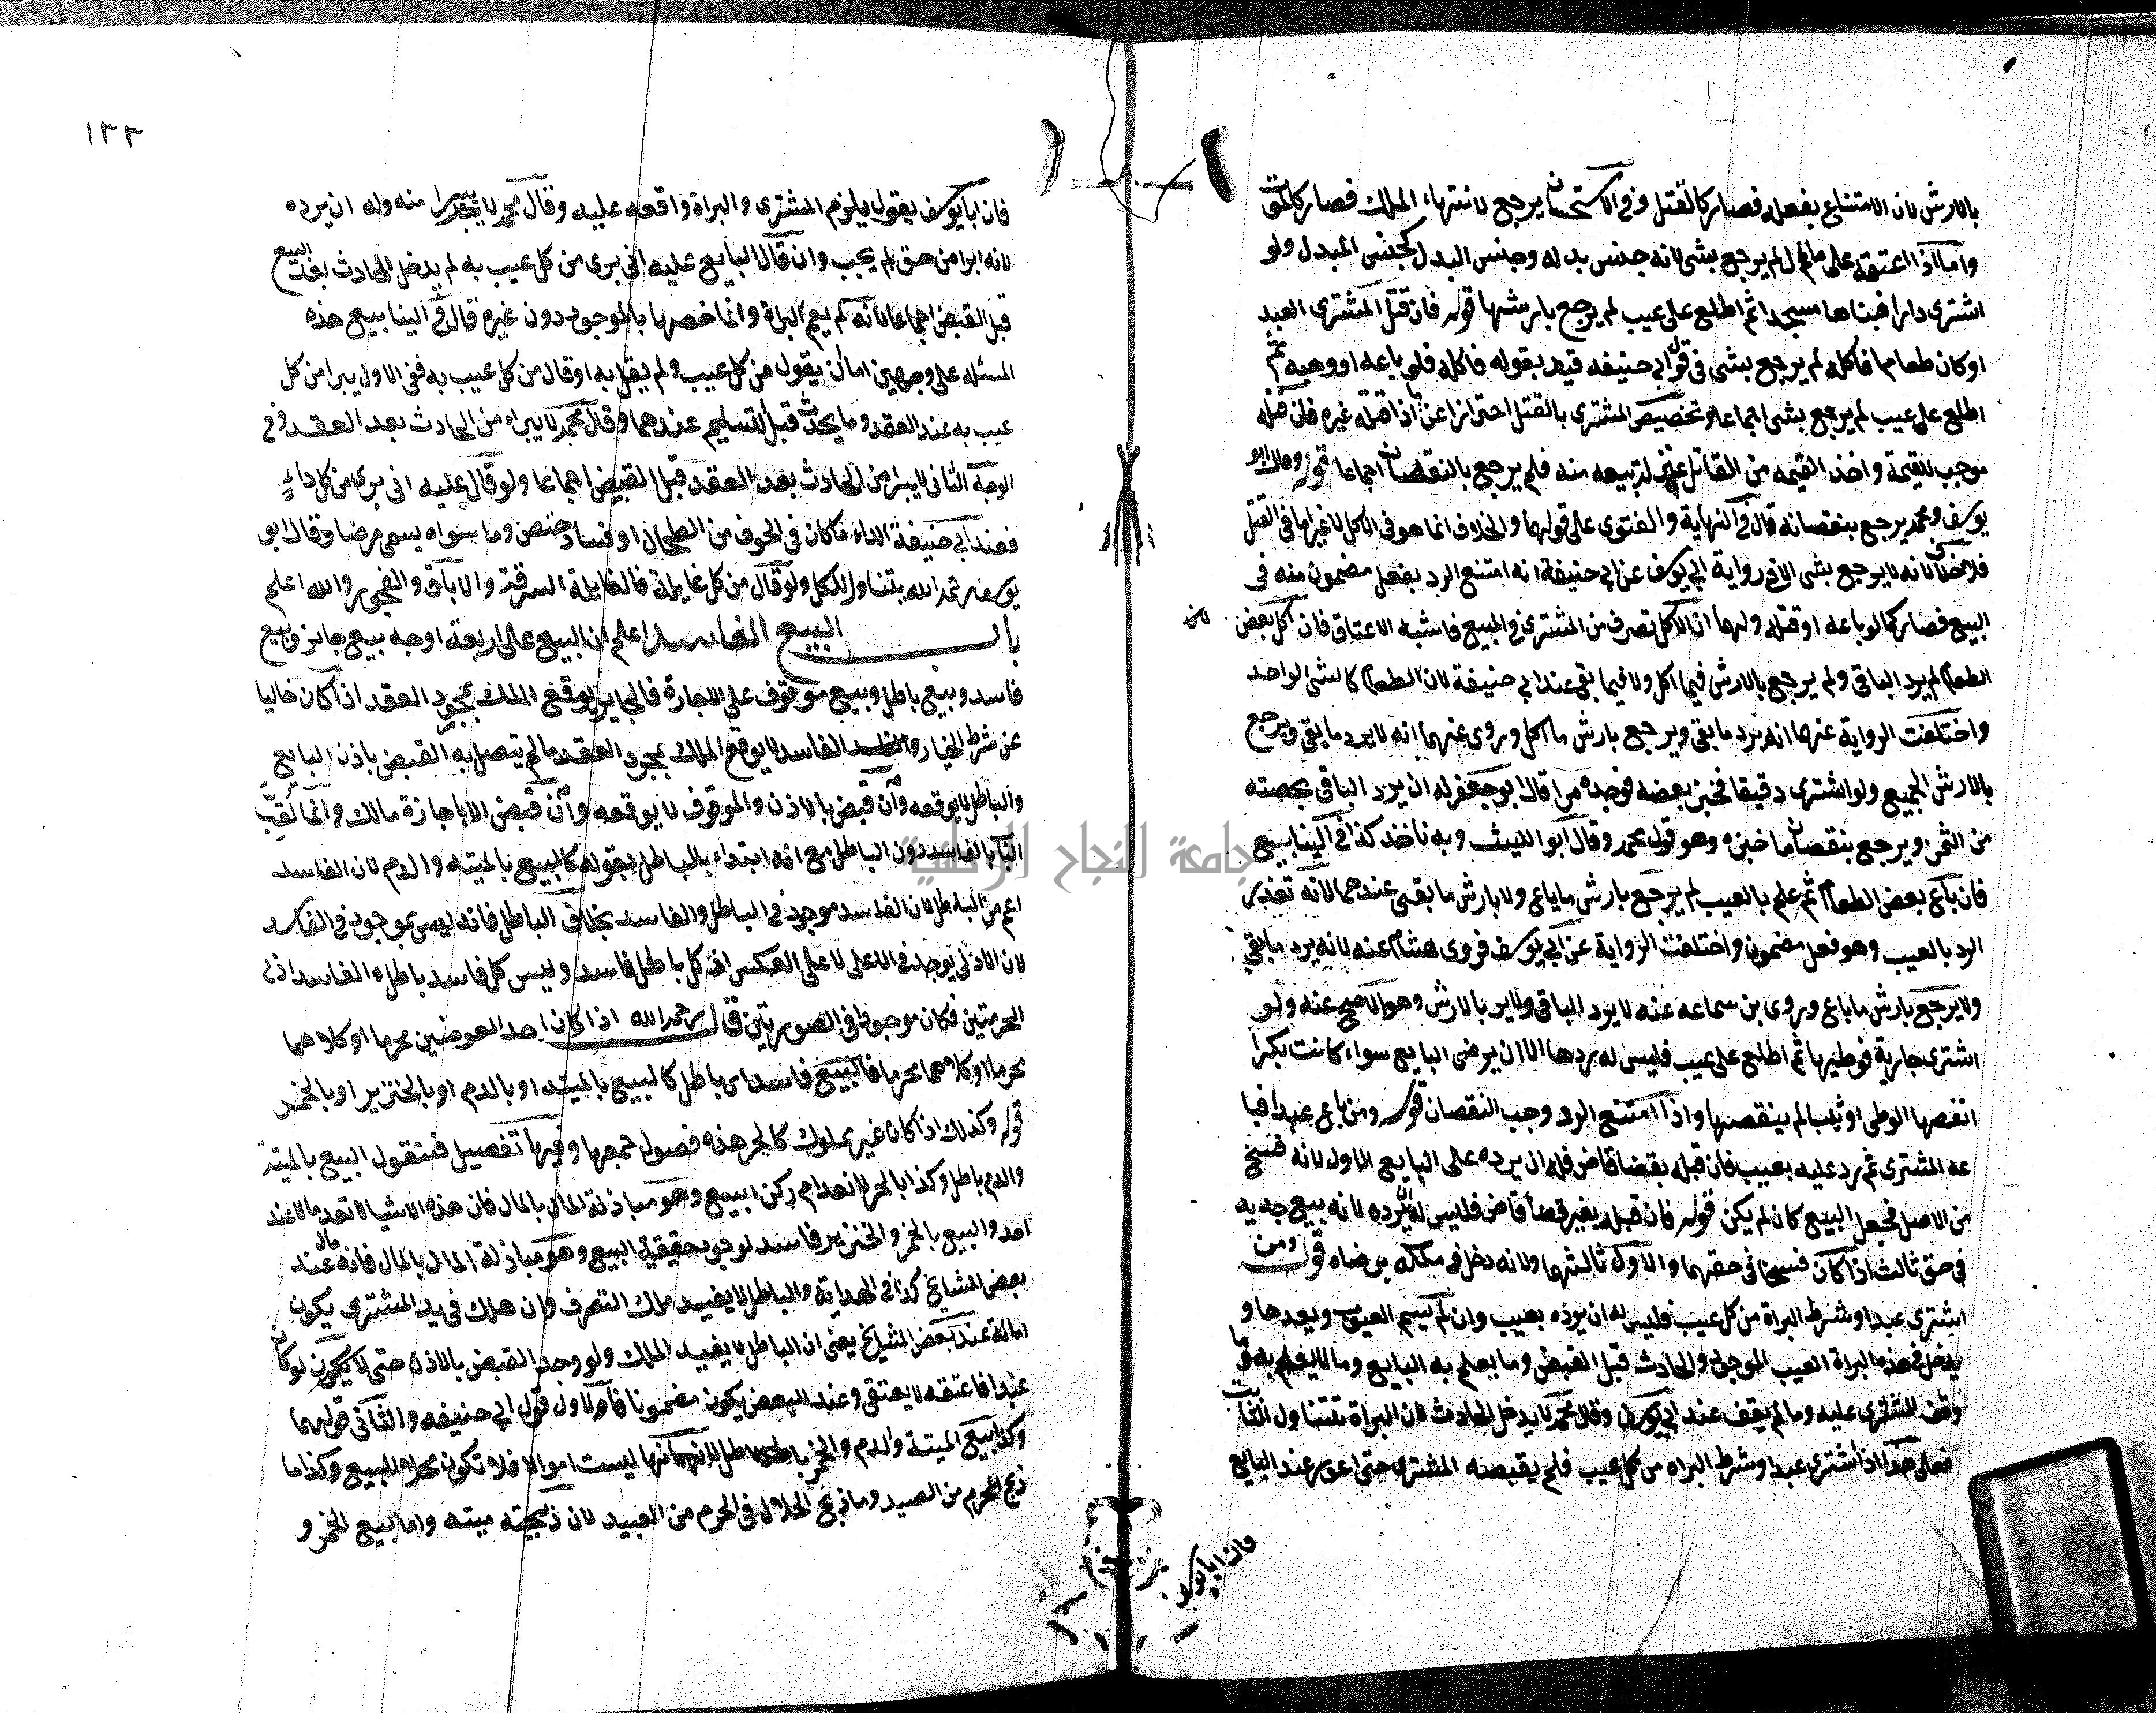 بالارش لان الامتناع بفعله فصار كالقتل وفي الاستحسان يرجع لانتهاء الملك فصار كالموت
واما اذا اعتقه على مال لم يرجع بشي لانه حبس بدله وحبس البدل كحبس المبدل ولو
اشترى دارا فبناها مسجدا ثم اطلع على عيب لم يرجع بارشها قوله فان قتل المشترى العبد
او كان طعاما فاكله لم يرجع بشى في قول ابي حنيفه قيد بقوله فاكله فلو باعه او وهبه ثم
اطلع على عيب لم يرجع بشى اجماعا وتخصيص المشترى بالقتل احترازا عن ما اذا قتله غيره فان قتله
موجب للقيمة واخذ القيمه من القاتل بمنزلة بيعه منه فلم يرجع بالنقصان اجماعا قوله وقال ابو
يوسف ومحمد يرجع بنقصانه قال في النهاية والفتوى على قولهما والخلاف انما هو في الاكل لا غير اما في القتل
فلا خلاف انه لا يرجع بشى الا في رواية ابي يوسف عن ابي حنيفة انه امتنع الرد بفعل مضمون منه في
البيع فصار كما لو باعه او قتله ولهما ان الاكل تصرف من المشترى في المبيع فاشبه الاعتاق فان اكل بعض
الطعام لم يرد الباقي ولم يرجع بالارش فيما اكل ولا فيما بقى عند ابي حنيفة لان الطعام كالشى الواحد
واختلفت الرواية عنهما انه يرد ما بقى ويرجع بارش ما اكل وروى عنهما انه لا يرد ما بقى ويرجع
بالارش الجميع ولو اشترى دقيقا فخبز بعضه فوجده مرا قال ابو جعفر له ان يرد الباقى بحصته
من الثمن ويرجع بنقصان ما خبزه وهو قول محمد وقال ابو الليث وبه ناخذ كذا في الينابيع
فان باع بعض الطعام ثم علم بالعيب لم يرجع بارش ما باع ولا بارش ما بقى عندهما لانه تعذر
الرد بالعيب وهو فعل مضمون واختلفت الرواية عن ابي يوسف فروى هشام عنه لانه يرد ما بقي
ولا يرجع بارش ما باع وروى بن سماعه عنه لا يرد الباقى ولا يرجع بالارش وهو الاصح عنه ولو
اشترى جارية فوطيها ثم اطلع على عيب فليس له ردها الا ان يرضى البايع سواء كانت بكرا
انقصها الوطى او ثيبا لم ينقصها واذا امتنع الرد وجب النقصان قوله ومن باع عبدا فبا
عه المشترى ثم رد عليه بعيب فان قبله بقضا قاض فله ان يرده على البايع الاول لانه فسخ
من الاصل فجعل البيع كان لم يكن قوله فان قبله بغير قضا قاض فليس له ان يرده لانه بيع جديد
في حق ثالث اذا كان فسخا في حقهما والاول ثالثهما ولانه دخل في ملكه برضاه قوله ومن
اشترى عبدا وشرط البراة من كل عيب فليس له ان يرده بعيب وان لم يسم العيوب ويعدها و
يدخل في هذه البراة العيب الموجود والحادث قبل القبض وما يعلم به البايع وما لا يعلم به وما
وقف المشترى عليه وما لم يقف عند ابي يوسف وقال محمد لا يدخل الحادث لان البراة تتناول الثابت
فعلى هذا اذا اشترى عبدا وشرط البراه من كل عيب فلم يقبضه المشترى حتى اعور عند البايع
فان ابا يوسف
١٣٣
فان ابا يوسف يقول يلزم المشترى والبراة واقعه عليه وقال محمد لا يبرا منه وله ان يرده
لانه ابرا من حق لم يجب وان قال البايع عليه اني برى من كل عيب به لم يدخل الحادث بعد البيع
قبل القبض اجماعا لانه لم يعم البراة وانما خصها بالموجود دون غيره قال في الينابيع هذه
المسئله على وجهين اما ان يقول من كل عيب ولم يقل به او قال من كل عيب به ففي الاول يبرا من كل
عيب به عند العقد وما يحدث قبل التسليم عندهما وقال محمد لا يبراء من الحادث بعد العقد وفي
الوجه الثانى لا يبرا من الحادث بعد العقد قبل القبض اجماعا ولو قال عليه انى برى من كل داء
فعند ابي حنيفة الداء ما كان في الجوف من الطحال او فساد حيض وما سواه يسمى مرضا وقال ابو
يوسف رحمه الله يتناول الكل ولو قال من كل غايلة فالغايلة السرقة والاباق والفجور والله اعلم
باب البيع الفاسد اعلم ان البيع على اربعة اوجه بيع جائز وبيع
فاسد وبيع باطل وبيع موقوف على الاجازة فالجايز يوقع الملك بمجرد العقد اذا كان خاليا
عن شرط الخيار والفاسد لا يوقع الملك بمجرد العقد ما لم يتصل به القبض باذن البايع
والباطل لا يوقعه وان قبض بالاذن والموقوف لا يوقعه وان قبض الا باجازة مالك وانما لقب
الباب بالفاسد دون الباطل مع انه ابتداء بالباطل بقوله كالبيع بالميته والدم لان الفاسد
اعم من الباطل لان الفاسد موجود في الباطل والفاسد بخلاف الباطل فانه ليس بموجود في الفاسد
لان الادنى يوجد في الاعلى لا على العكس اذ كل باطل فاسد وليس كل فاسد باطل والفاسد ادنى
الحرمتين فكان موجودا في الصورتين قال رحمه الله اذا كان احد العوضين محرما او كلاهما
محرما او كلاهما محرما فالبيع فاسد اى باطل كالبيع بالميته او بالدم او بالخنزير او بالخمر
قوله وكذلك اذا كان غير مملوك كالحر هذه فصول جمعها وفيها تفصيل فنقول البيع بالميتة
والدم باطل وكذا بالحر لانعدام ركن البيع وهو مبادلة المال بالمال فان هذه الاشيا لا تعد مالا عند
احد والبيع بالخمر والخنزير فاسد لوجود حقيقة البيع وهو مبادلة المال بالمال فانه مال عند
بعض المشايخ كذا في الهداية والباطل لا يفيد ملك التصرف وان هلك في يد المشترى يكون
امانة عند بعض المشايخ يعنى ان الباطل لا يفيد الملك ولو وجد القبض بالاذن حتى لا يكون لو كان
عبدا فاعتقه لا يعتق وعند البعض يكون مضمونا فالاول قول ابي حنيفه والثاني قولهما
وكذا بيع الميتة والدم والحر باطل لانها ليست اموالا فلا تكون محلا للبيع وكذا ما
ذبح المحرم من الصيد وما ذبح الحلال في الحرم من الصيد لان ذبيحته ميته واما بيع الخمر و
جامعة النجاح الوطنية